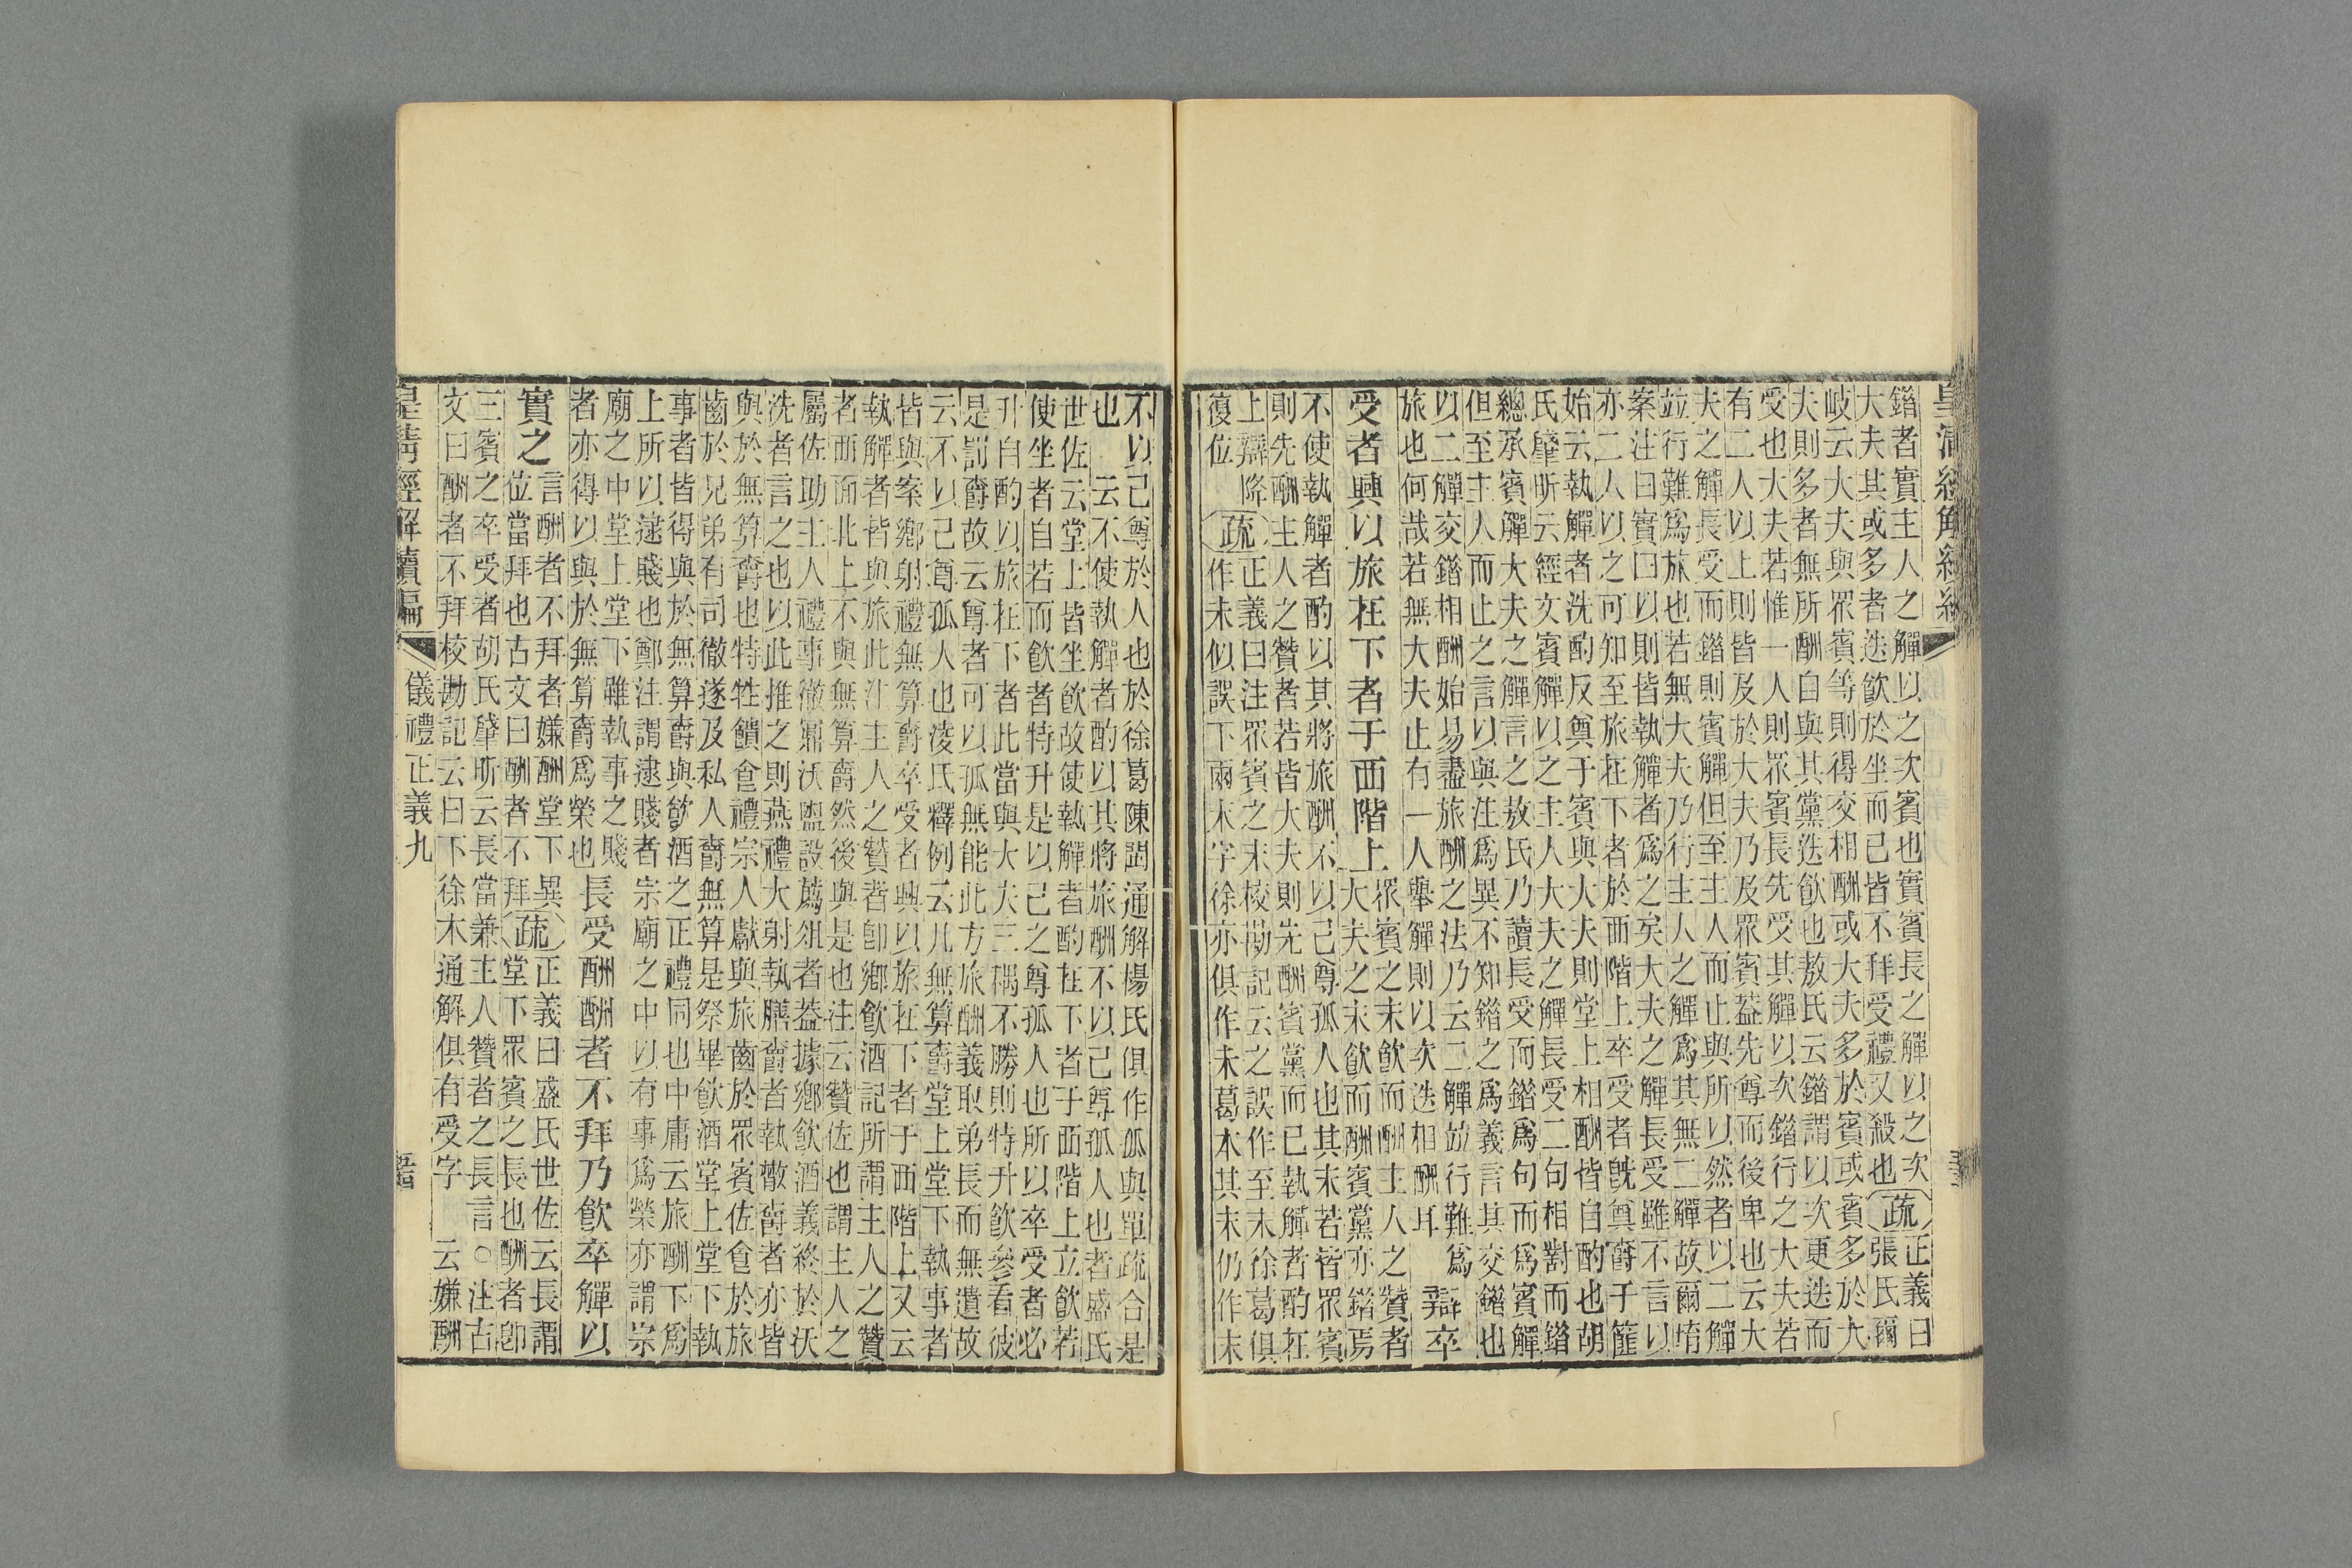 皇清經解續編
錯者實主人之觶以之次賓也實賓長之觶以之次疏正義曰
大夫其或多者迭飮於坐而已皆不拜受禮又殺也張氏爾
岐云大夫與眾賓等則得交相酬或大夫多於賓或賓多於大
夫則多者無所酬自與其黨迭飮也敖氏云錯謂以次更迭而
受也大夫若惟一人則眾賓長先受其觶以次錯行之大夫若
有二人以上則皆及於大夫乃及眾賓葢先尊而後卑也云大
夫之觶長受而錯則賓觶但至主人而止與所以然者以二觶
竝行難爲旅也若無大夫乃行主人之觶爲其無二觶故爾堉
案注曰實曰以則皆執觶者爲之矣大夫之觶長受雖不言以
亦二人以之可知至旅在下者於西階上卒受者旣奠觶于篚
始云執觶者洗酌反奠于賓與大夫則堂上相酬皆自酌也胡
氏肇昕云經文賓觶以之主人大夫之觶長受二句相對而錯
總承賓觶大夫之觶言之敖氏乃讀長受而錯爲句而爲賓觶
但至主人而止之言以與注爲異不知錯之爲義言其交錯也
以二觶交錯相酬始易盡旅酬之法乃云二觶竝行難爲
旅也何哉若無大夫止有一人舉觶則以次迭相酬耳 辯卒
受者興以旅在下者于西階上眾賓之末飮而酬主人之贊者
大夫之末飮而酬賓黨亦錯焉
不使執觶者酌以其將旅酬不以己尊孤人也其末若皆眾賓
則先酬主人之贊者若皆大夫則先酬賓黨而已執觶者酌在
上辯降復位疏正義曰注眾賓之末校勘記云之誤作至末徐葛俱
作未似誤下兩末字徐亦俱作未葛本其末仍作末
不以己尊於人也於徐葛陳閩通解楊氏俱作孤與單疏合是
也 云不使執觶者酌以其將旅酬不以己尊孤人也者盛氏
世佐云堂上皆坐飮故使執觶者酌在下者于西階上立飮若
使坐者自若而飮者特升是以己之尊孤人也所以卒受者必
升自酌以旅在下者此當與大夫三耦不勝則特升飮參看彼
是罰爵故云尊者可以孤無能此方旅酬義取弟長而無遺故
云不以己尊孤人也淩氏釋例云凡無算爵堂上堂下執事者
皆與案鄕射禮無算爵卒受者興以旅在下者于西階上又云
執觶者皆與旅此注主人之贊者卽鄕飮酒記所謂主人之贊
者西面北上不與無算爵然後與是也注云贊佐也謂主人之
屬佐助主人禮事徹鼏沃盥設薦俎者葢據鄕飮酒義終於沃
洗者言之也以此推之則燕禮大射執膳爵者執散爵者亦皆
與於無算爵也特牲饋食禮宗人獻與旅齒於眾賓佐食於旅
齒於兄弟有司徹遂及私人爵無算是祭畢飮酒堂上堂下執
事者皆得與於無算爵與飮酒之正禮同也中庸云旅酬下爲
上所以逮賤也鄭注謂逮賤者宗廟之中以有事爲榮亦謂宗
廟之中堂上堂下雖執事之賤
者亦得以與於無算爵爲榮也 長受酬酬者不拜乃飮卒觶以
實之言酬者不拜者嫌酬堂下異疏正義曰盛氏世佐云長謂
位當拜也古文曰酬者不拜 堂下眾賓之長也酬者卽
三賓之卒受者胡氏肇昕云長當兼主人贊者之長言○注古
文曰酬者不拜校勘記云曰下徐本通解俱有受字 云嫌酬
皇清經解續編
儀禮正義九